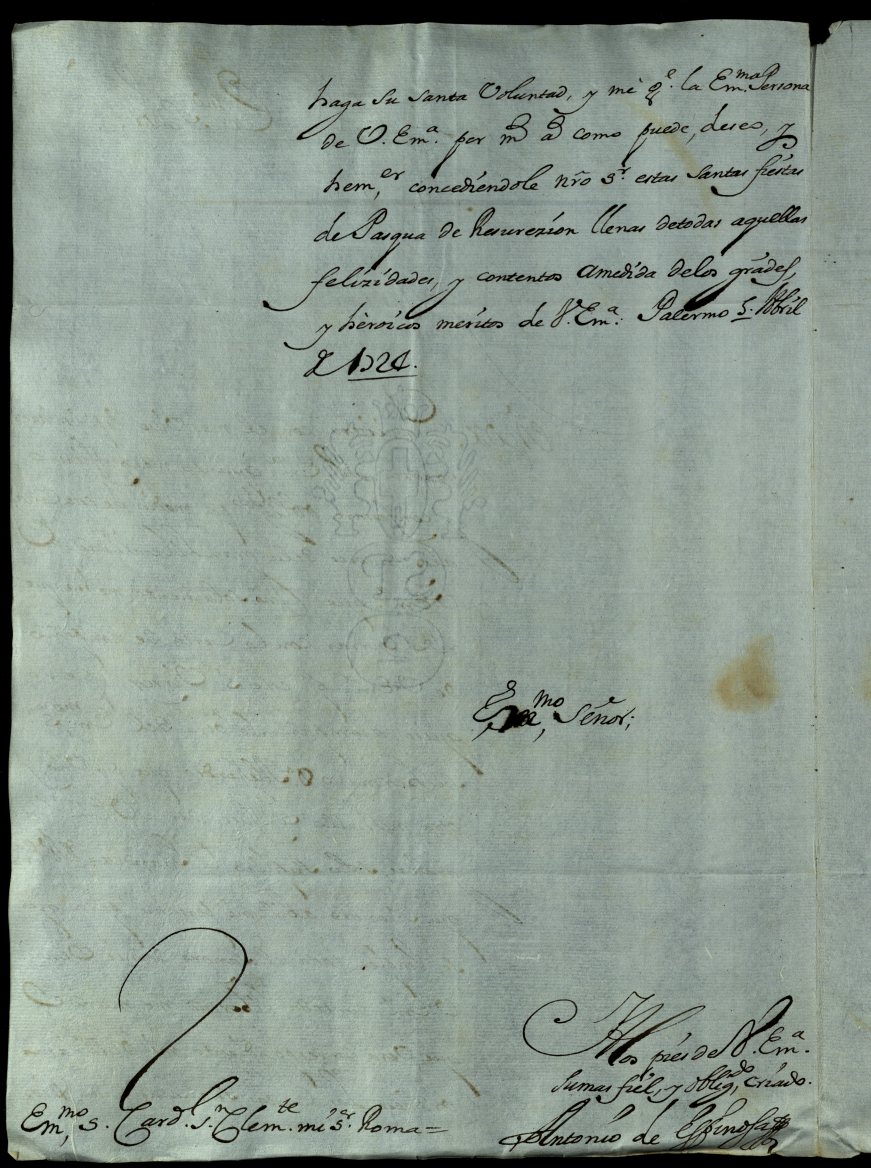 haga su santa Voluntad, y me g.e la Em.ma Persona
de V. Em.a per m.s a.s como puede, deseo, y
hem.er concediendole nr̃o s.r estas santas fiestas
de Pasqua de Resurezion llenas detodas aquellas
felizidades, y contentos amedida delos grãdes,
y hèroicos meritos de V. Em.a: Palermo 5. Abril
de 1724.
Em.mo Señor;
A los pies de V. Em.a
Su mas fiel, y oblig.do criado.
Antonio de Espinosa
Em.mo S. Card.l S.n Clem.te mi s.er Roma=